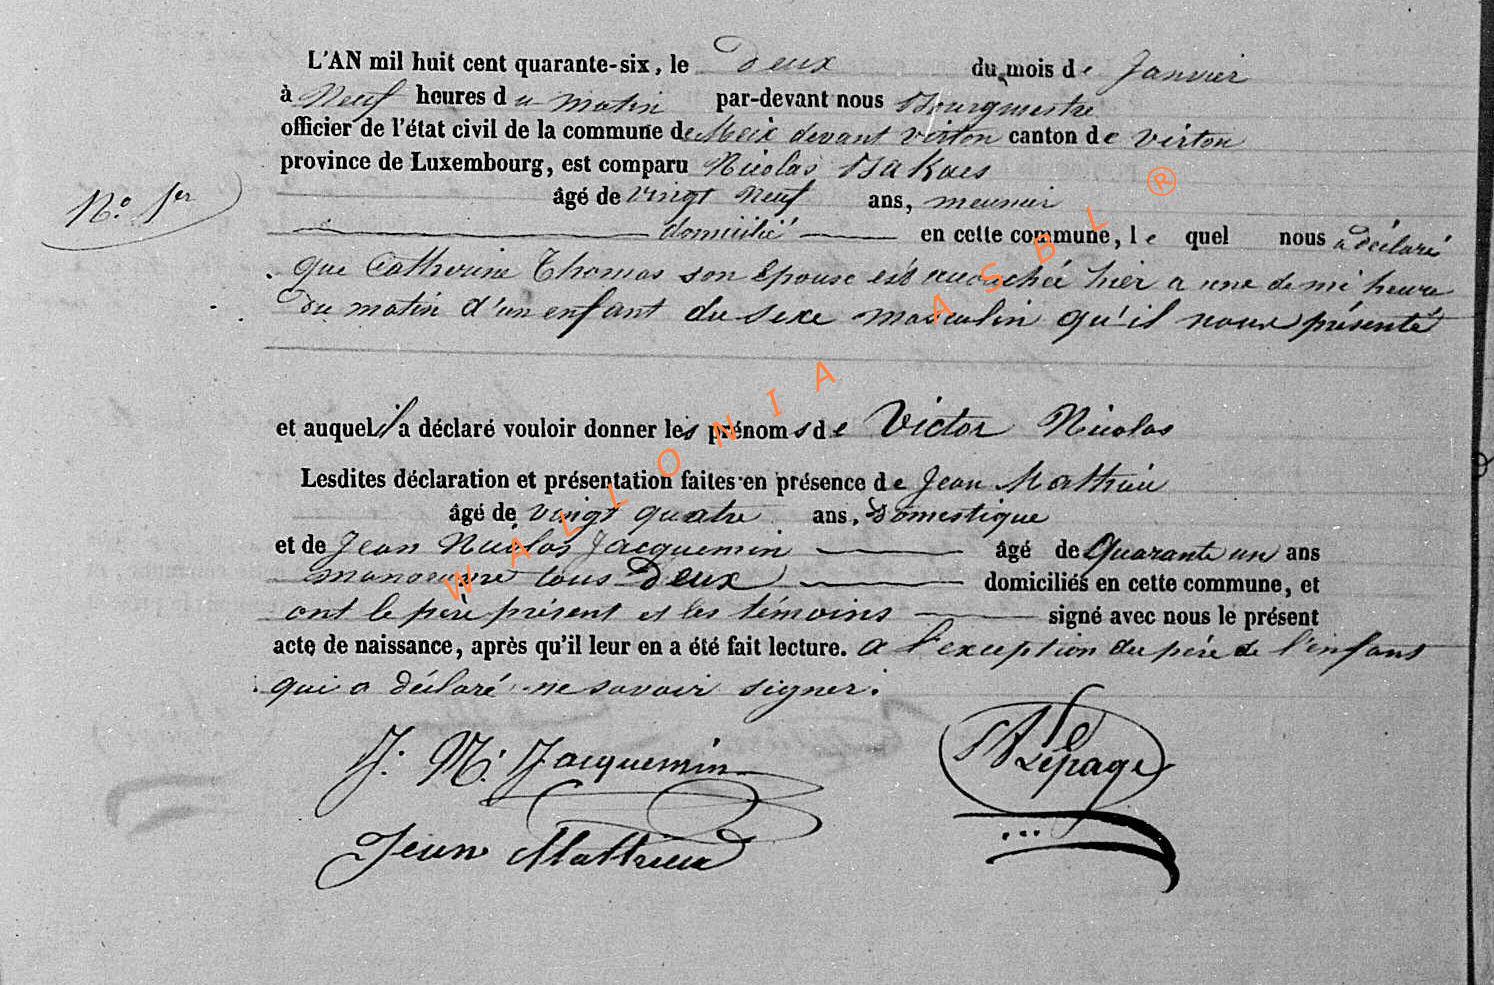 L'AN mil huit cent quarante-six, le deux du mois de Janvier
à Neuf heures du matin par-devant nous Bourgmestre
officier de l'état civil de la commune de Meix devant virton canton de virton
province de Luxembourg, est comparu Nicolas
N.° 1er
âgé de vingt Neuf ans, meunier
domicilié en cette commune, le quel nous a déclaré
que Catherine Thomas son Epouse est accouchée hier a une demi heure
du matin d'un enfant du sexe masculin qu'il nous présenté
et auquel il a déclaré vouloir donner les prénoms de Victor Nicolas
Lesdites déclaration et présentation faites en présence de Jean Mathieu
âgé de vingt quatre ans, Domestique
et de Jean Nicolas Jacquemin âgé de Quarante un ans
manoeuvre tous Deux domiciliés en cette commune, et
ont le père présent et les témoins signé avec nous le présent
acte de naissance, après qu'il leur en a été fait lecture. a l'exception du père de l'enfant
qui a déclaré ne savoir signer.
J. N. Jacquemin
Lepage
Jean Mathieu
WALLONIA ASBL ®